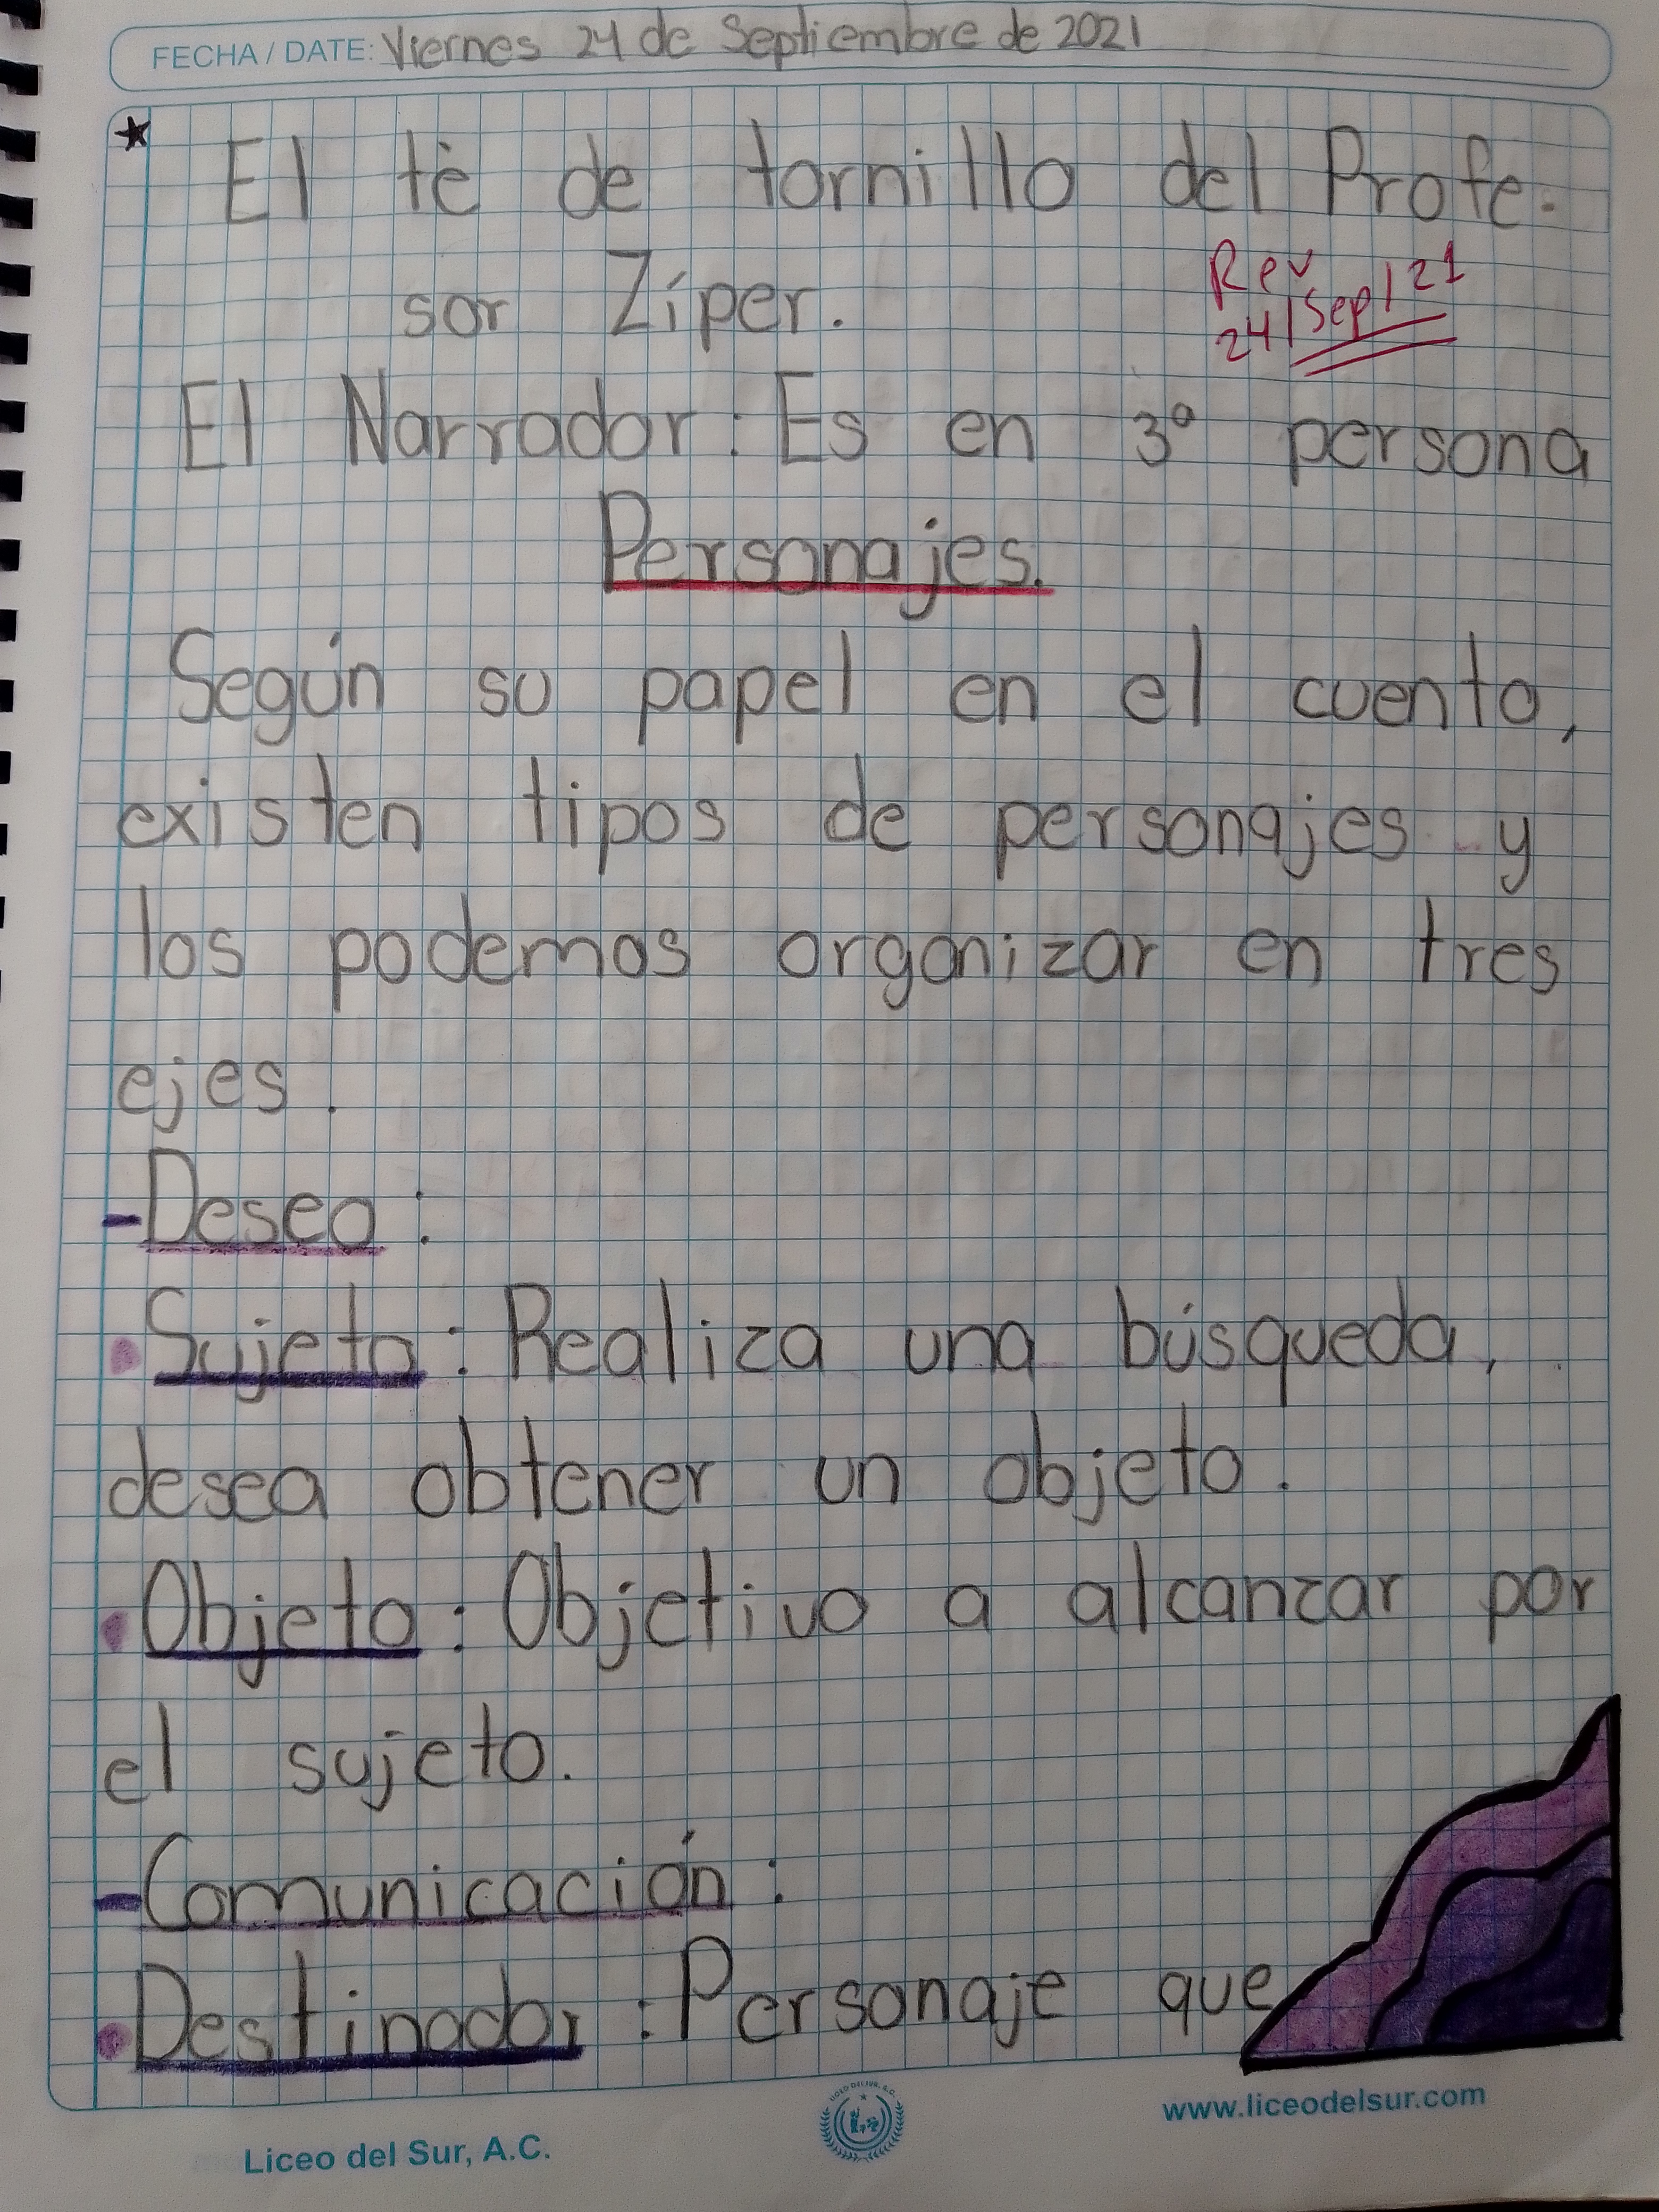 FECHA / DATE: Viernes 24 de Septiembre de 2021
El tè de tornillo del Profe-
sor Zíper.
Rev
24/Sep/21
El Narrador: Es en 3ª persona
Personajes.
Según su papel en el cuento,
existen tipos de personajes y
los podemos organizar en tres
ejes.
-Deseo:
•Sujeto: Realiza una búsqueda,
desea obtener un objeto.
•Objeto: Objetivo a alcanzar por
el sujeto.
-Comunicación:
•Destinador: Personaje que
www.liceodelsur.com
Liceo del Sur, A.C.